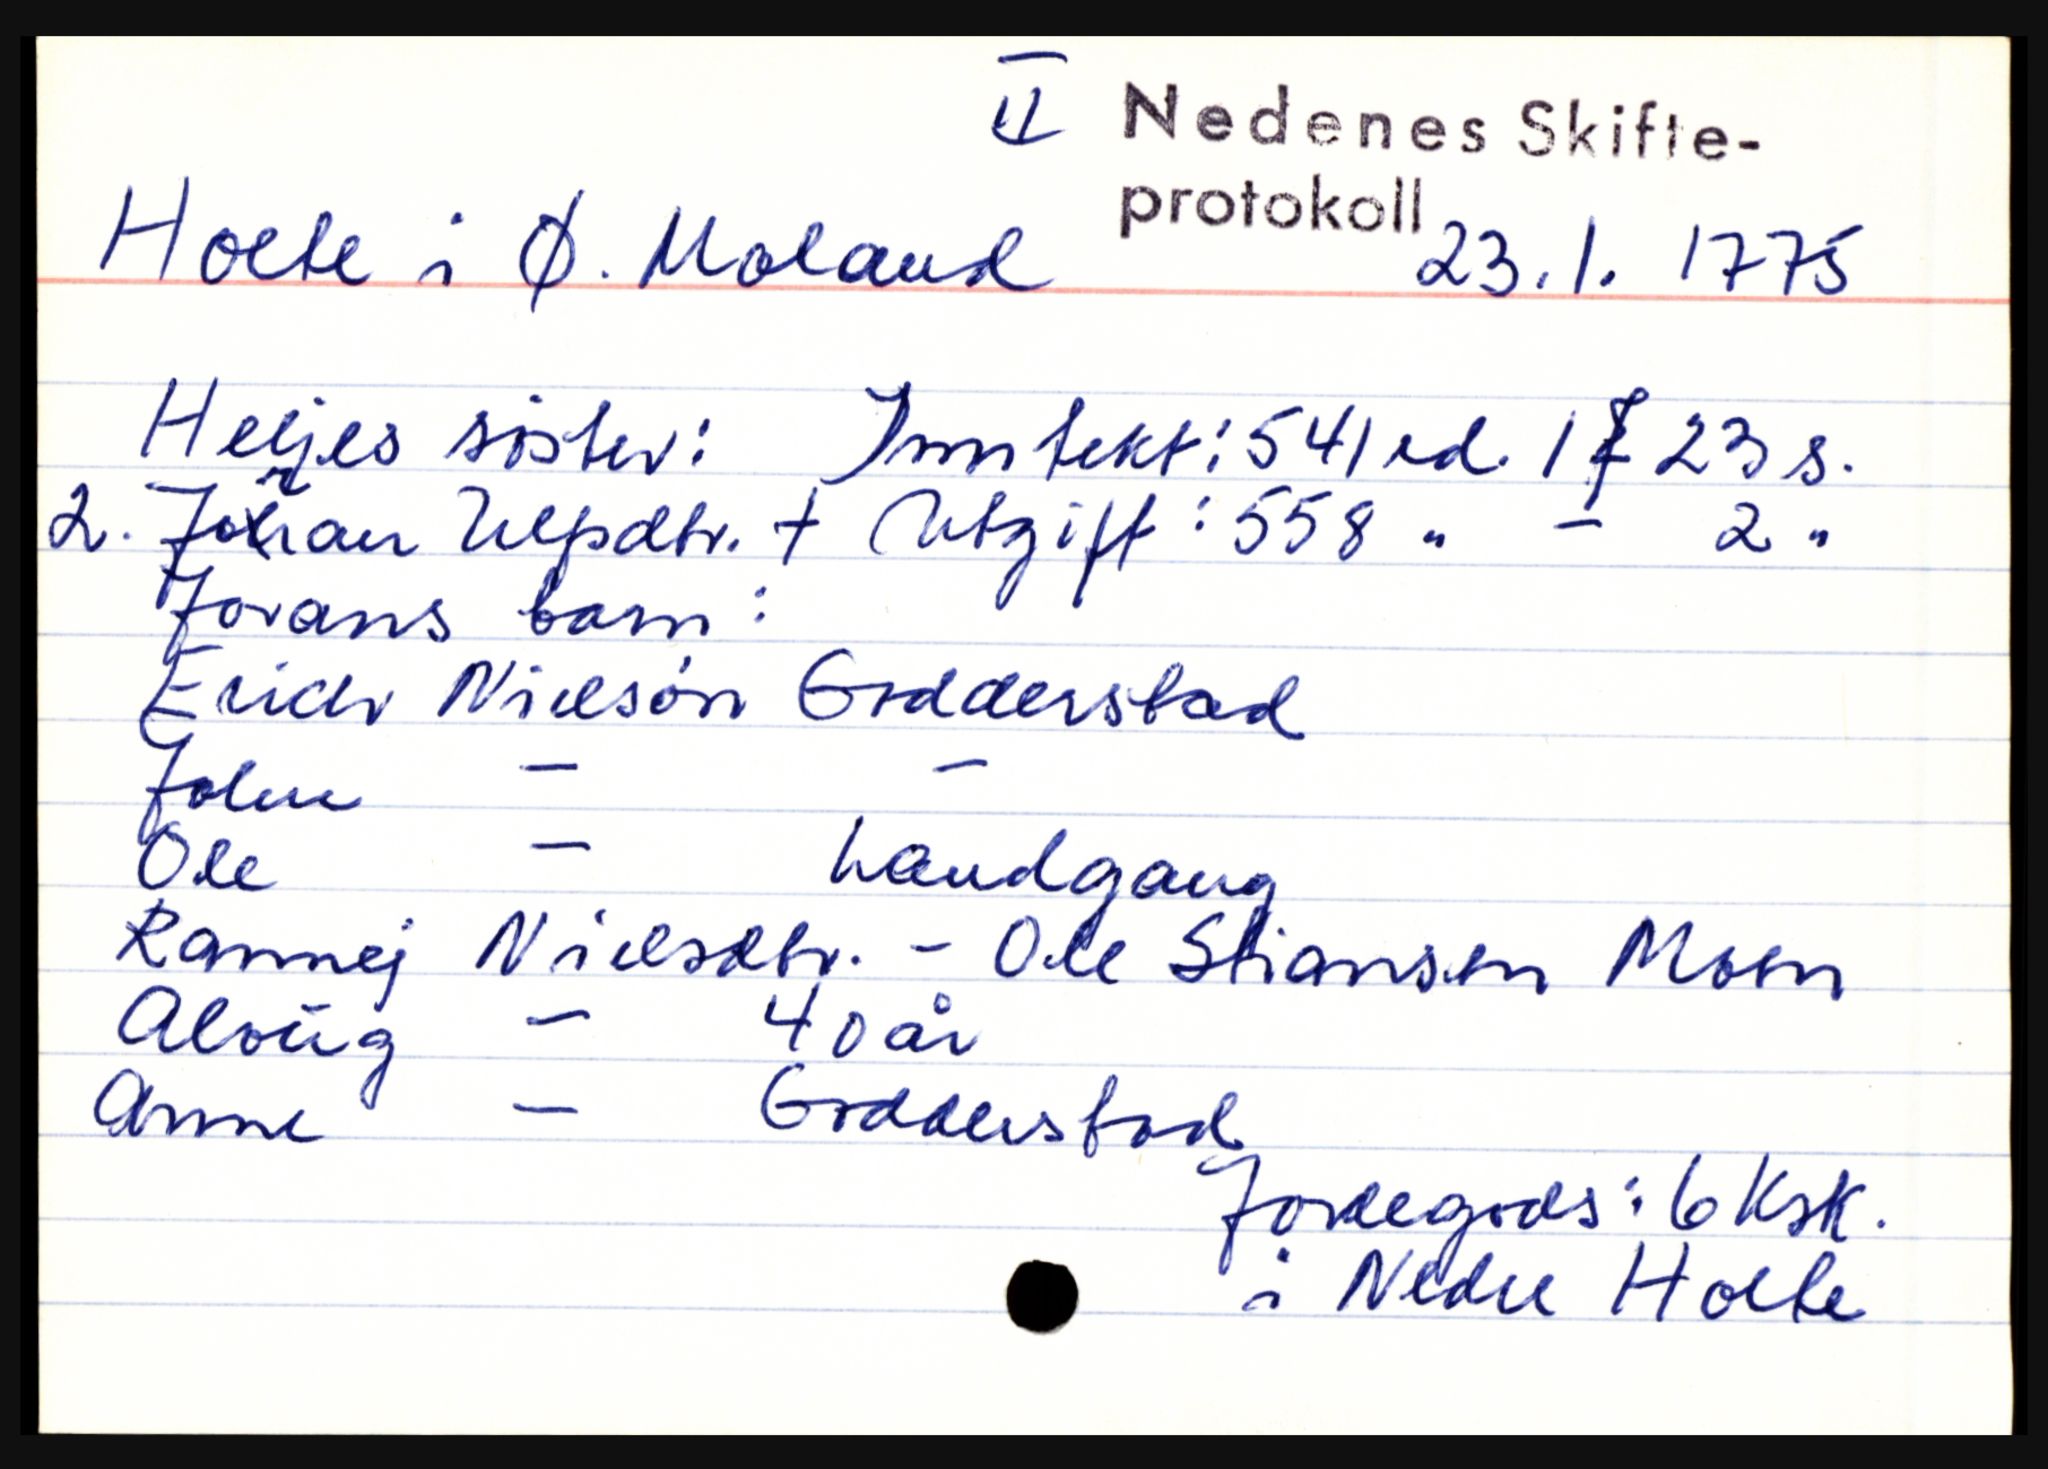 II Nedenes Skifte-
protokoll
Holte i Ø. Moland 23.1. 1775
Heljes søster: Inntekt: 541 rd. 1 23 s.
2. Joran Ulfsdtr. + Utgift: 558 " - 2 "
Jorans barn:
Erich Nielsøn Godderstad
John - -
Ole - Landgang
Rannej Nielsdtr. - Ole Stiansen Moen
Aloug - 40 år
Anne - Godderstad
Jordegods: 6 Ksk.
i Nedre Holte